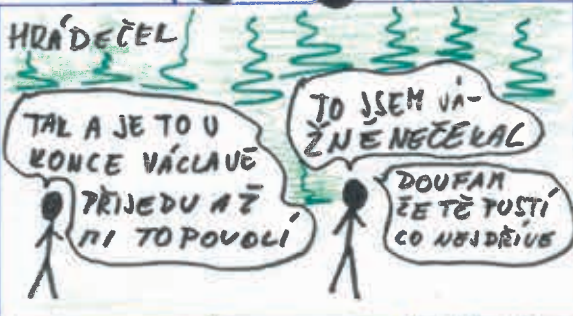 HRÁDEČEK
TAK A JE TO U
KONCE VÁCLAVE
PŘIJEDU AŽ
MI TO POVOLÍ
TO JSEM VÁ-
ŽNĚ NEČEKAL
DOUFAM
ŽE TĚ PUSTÍ
CO NEJDŘÍVE